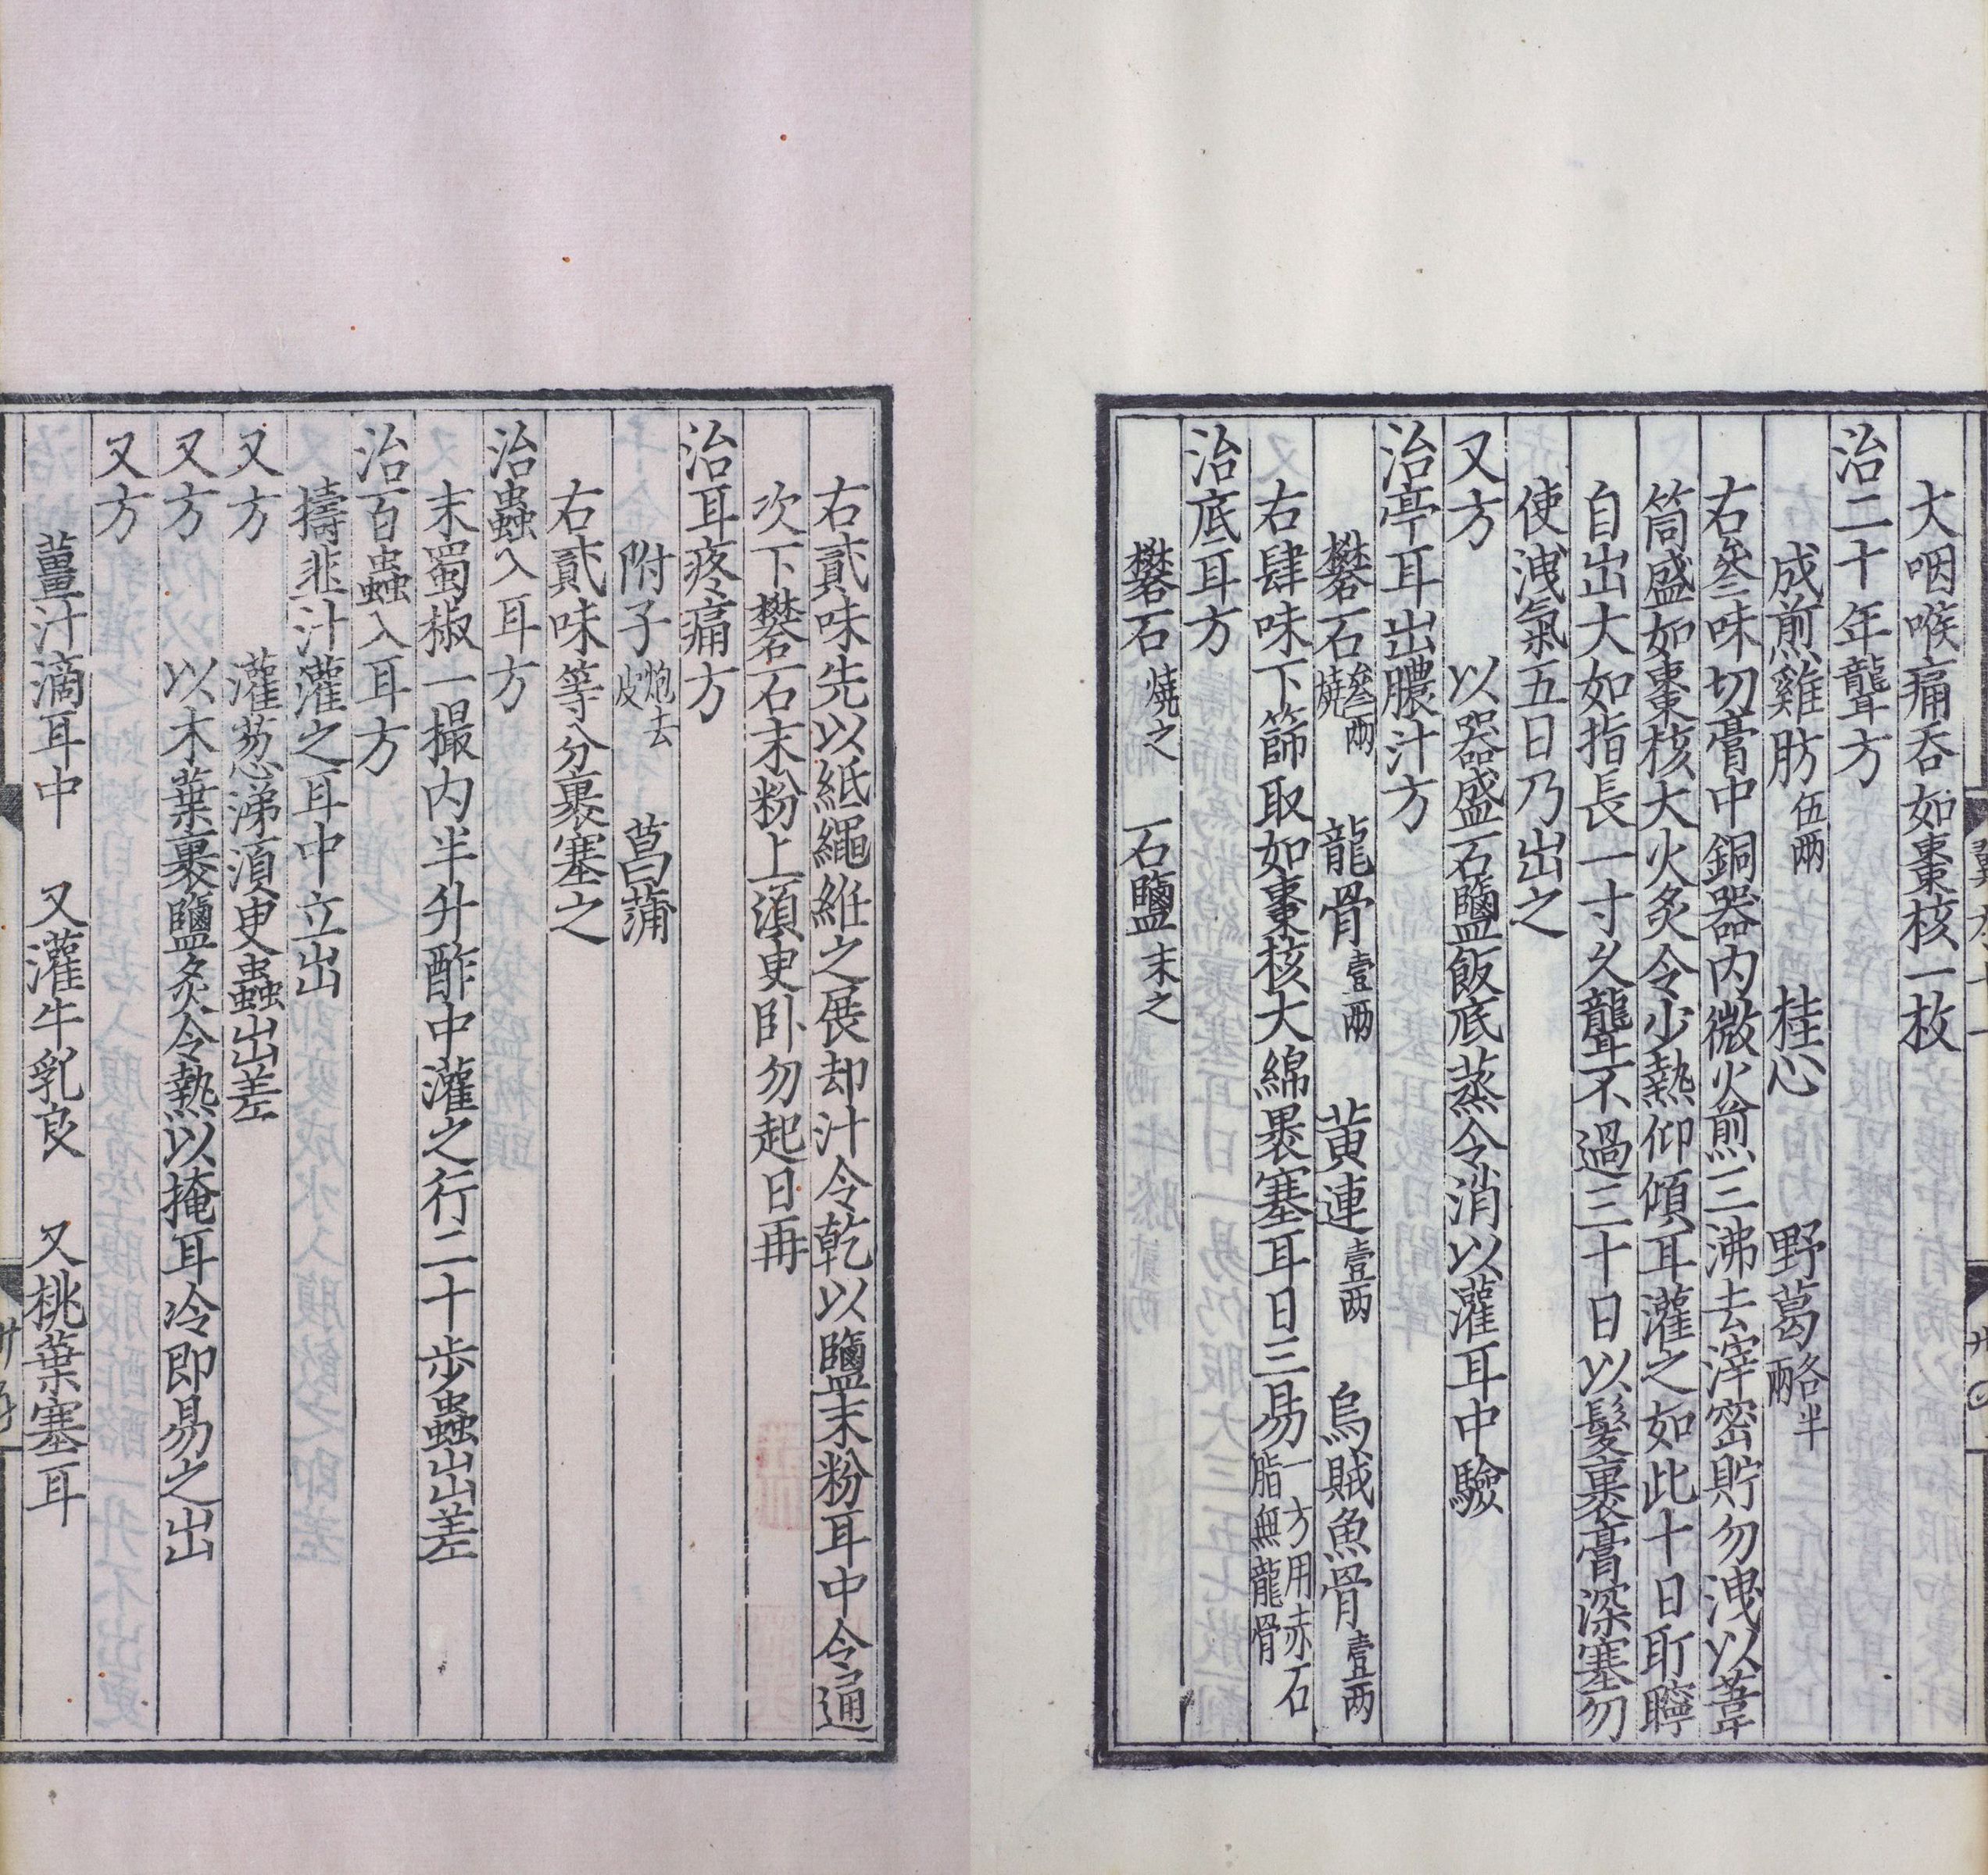 大咽喉痛吞如棗核一枚
治二十年聾方
成煎雞肪伍兩 桂心 野葛各半兩
右叄味切膏中銅器内微火煎三沸去滓密貯勿洩以葦
筒盛如棗核大火炙令少熱仰傾耳灌之如此十日耵聹
自出大如指長一寸久聾不過三十日以髮裹膏深塞勿
使洩氣五日乃出之
又方 以器盛石鹽飯底蒸令消以灌耳中驗
治亭耳出膿汁方
礬石叄兩燒 龍骨壹兩 黄連壹两 烏賊魚骨壹两
右肆味下篩取如棗核大綿裹塞耳日三易一方用赤石脂無龍骨
治底耳方
礬石燒之 石鹽末之
右貳味先以紙繩維之展却汁令乾以鹽末粉耳中令通
次下礬石末粉上湏臾卧勿起日再
治耳疼痛方
附子炮去皮 菖蒲
右貳味等分裹塞之
治蟲入耳方
末蜀椒一撮内半升酢中灌之行二十步蟲出差
治百蟲入耳方
擣韭汁灌之耳中立出
又方 灌葱涕湏臾蟲出差
又方 以木葉裹鹽炙令熱以掩耳冷即易之出
又方
薑汁滴耳中 又灌牛乳良 又桃葉塞耳